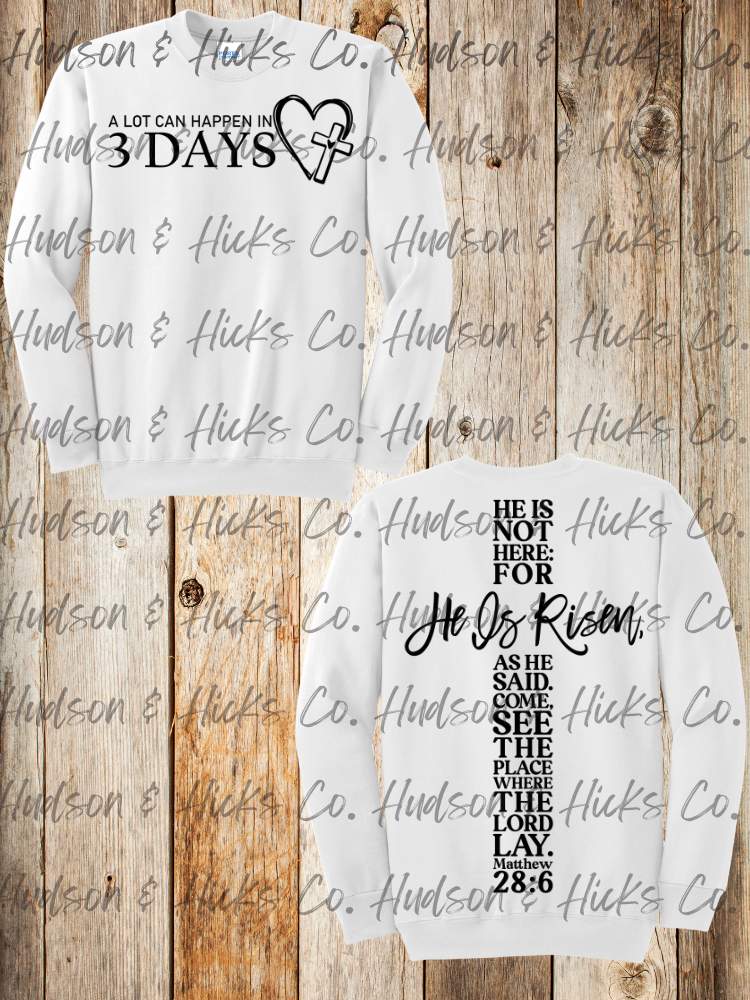 Hudson & Hicks Co. Hudson & Hicks Co.
A LOT CAN HAPPEN IN
3 DAYS
Hudson & Hicks Co. Hudson & Hicks Co.
Hudson & Hicks Co. Hudson & Hicks Co.
Hudson & Hicks Co. Hudson & Hicks Co.
Hudson & Hicks Co. Hudson & Hicks Co.
Hudson & Hicks Co. Hudson & Hicks Co.
HE IS
NOT
HERE:
FOR
He Is Risen,
AS HE
SAID.
COME,
SEE
THE
PLACE
WHERE
THE
LORD
LAY.
Matthew
28:6
Hudson & Hicks Co. Hudson & Hicks Co.
Hudson & Hicks Co. Hudson & Hicks Co.
Hudson & Hicks Co. Hudson & Hicks Co.
Hudson & Hicks Co. Hudson & Hicks Co.